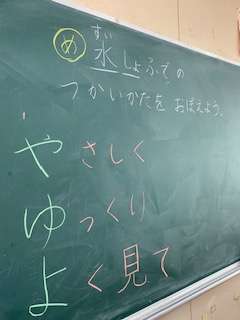 め 水しょふでの
すい
つかいかたを おぼえよう。
やさしく
ゆっくり
よく見て